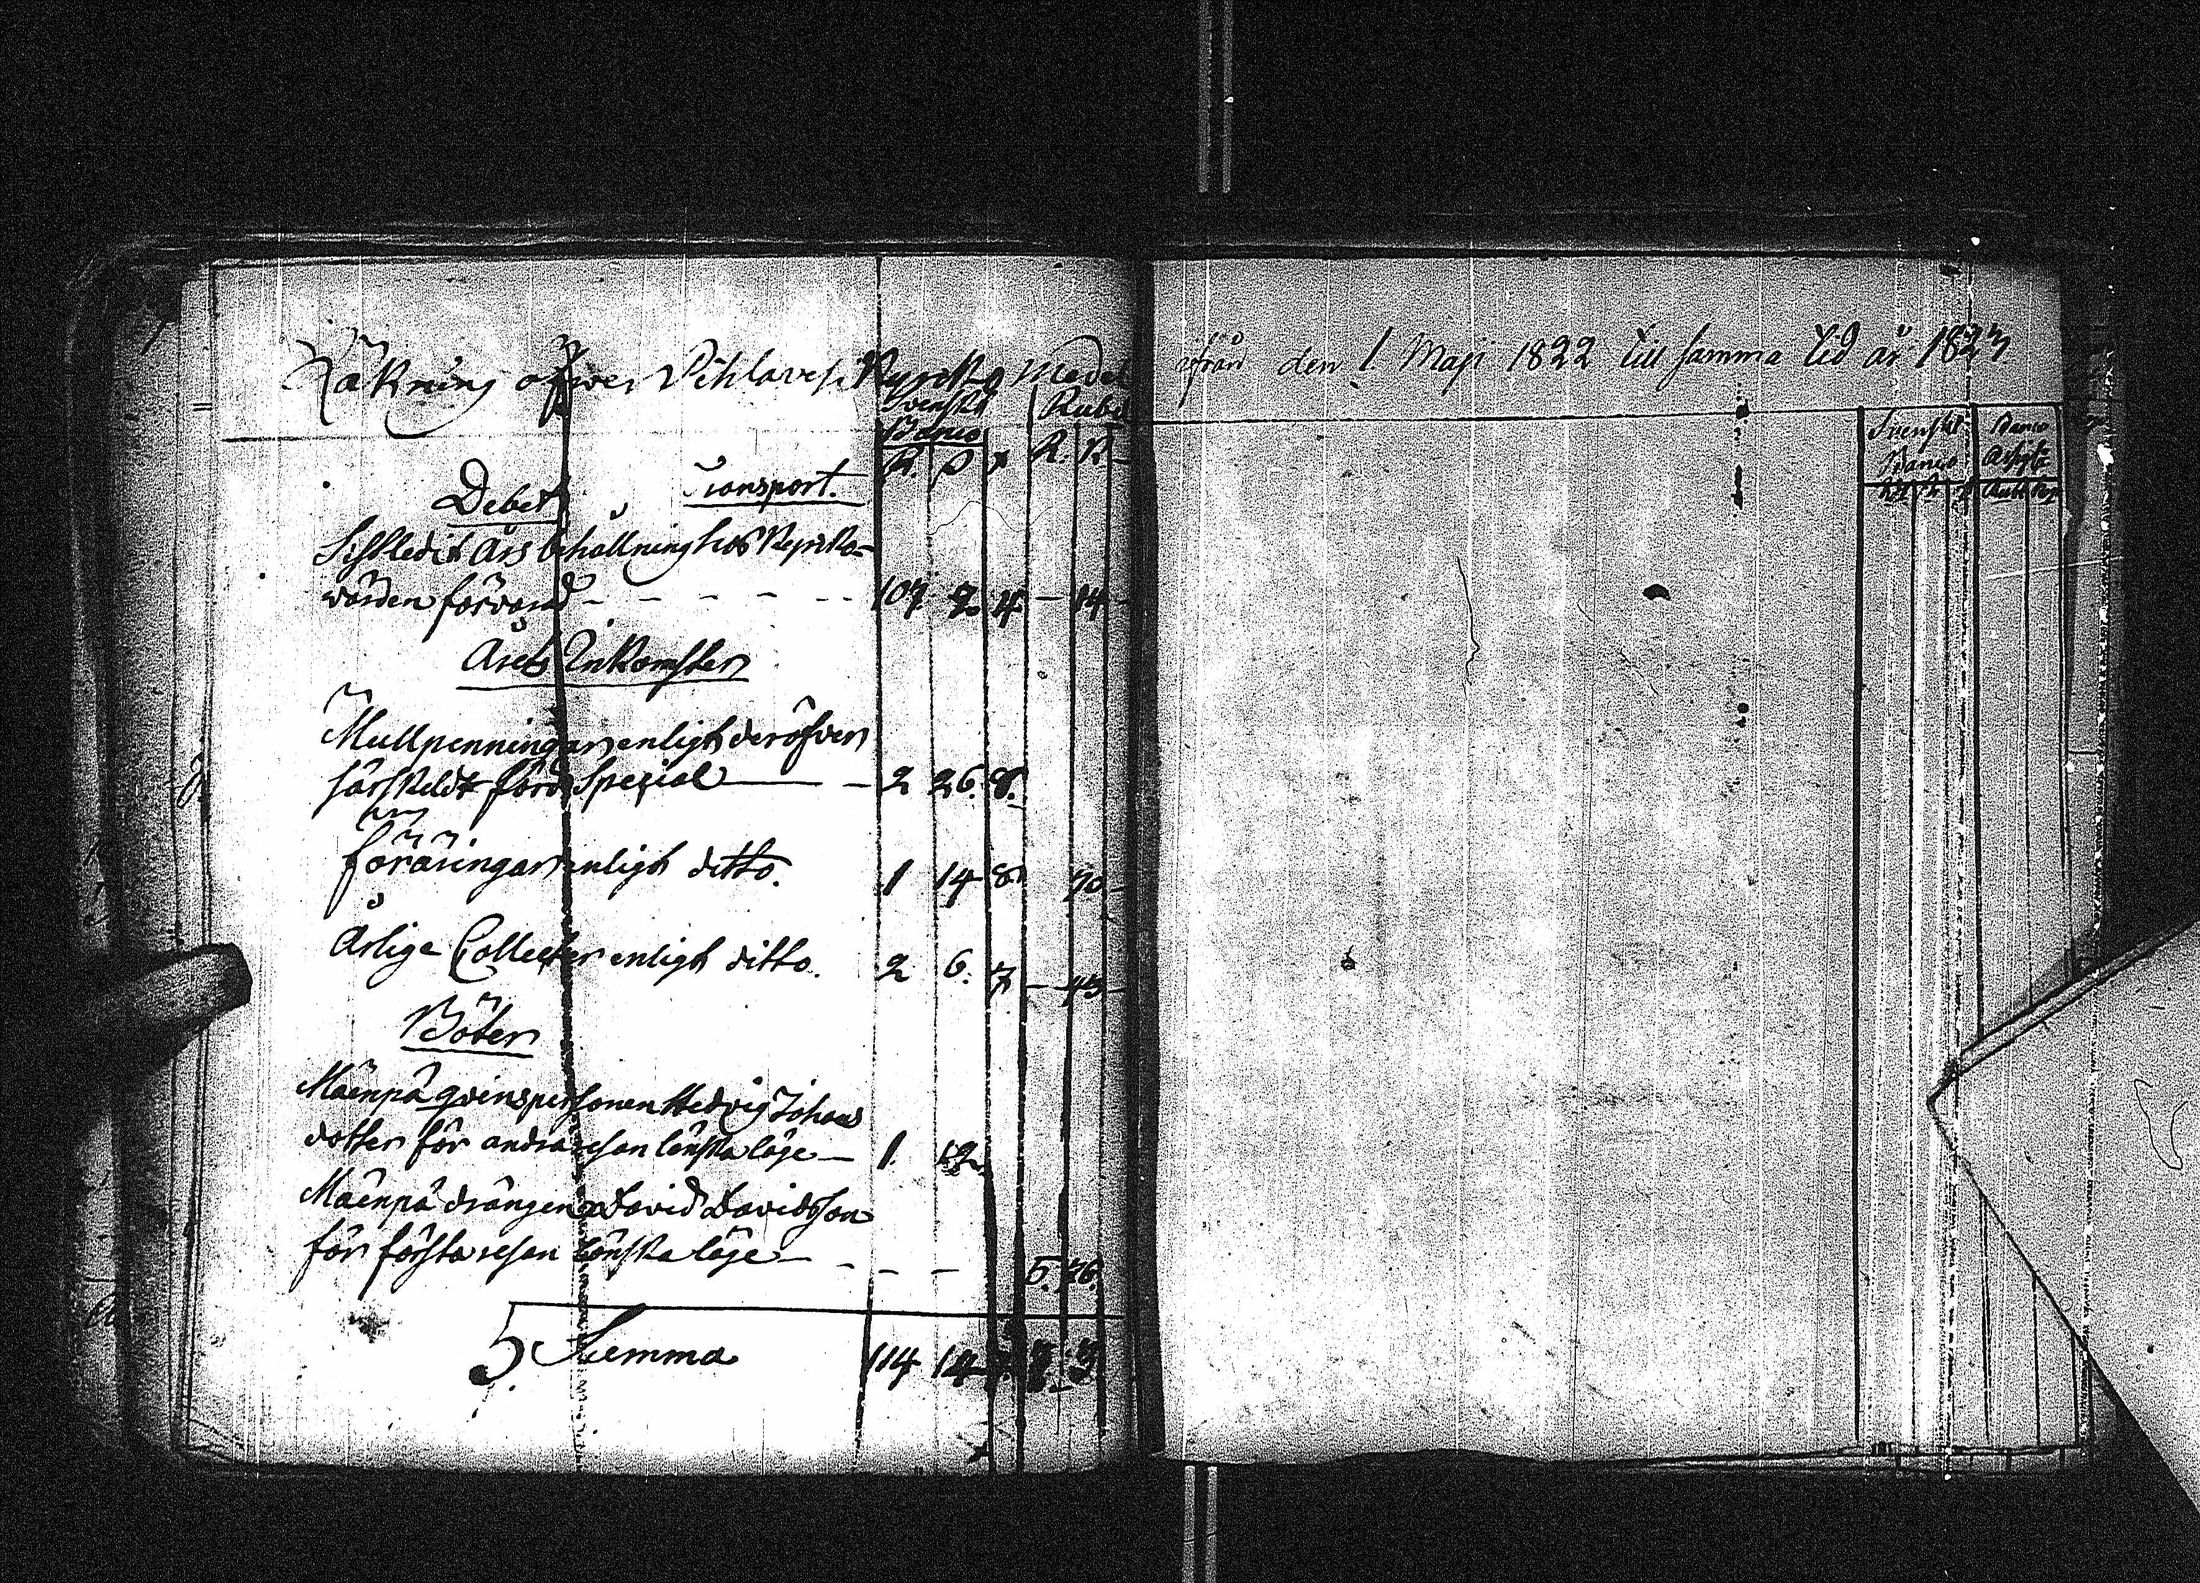 Räkning öfwer Pihlavesi Kyrko Medel ifrån den 1. Maji 1822 till samma tid år 1823
Svenskt Rubel
Banco
R. R. K.
Debet Transport.
Sistledit Års behållning hos Kyrko-
värden förvarad - - - - - - 107. 4 - 14 -
Årets Inkomster
Mullpenningar enligh deröfver
särskeldt förd Special 2 26. 8.
föräringar enligh ditto. 1 14 8 70 -
Årlige Collecter enligh ditto. 2 6. 7 - 43 -
Böter
Mäenpä qvinspersonen Hedvig Johans
dotter för andra resan lönska läge 1. 12
Mäenpä drängen David Davidsson
för första resan lönska läge - - - - 5. 76.
Summa 114 14
Svenskt Banco
Banco Assigt:
Rubl Kop